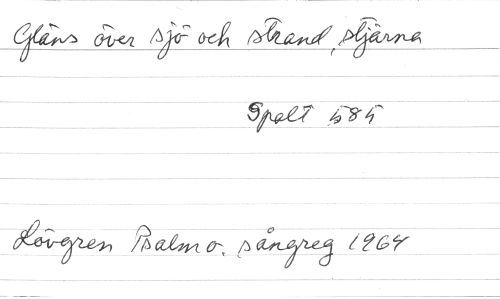 Gläns över sjö och strand, stjärna
Spalt 585
Lövgren Psalm o. sångreg 1964